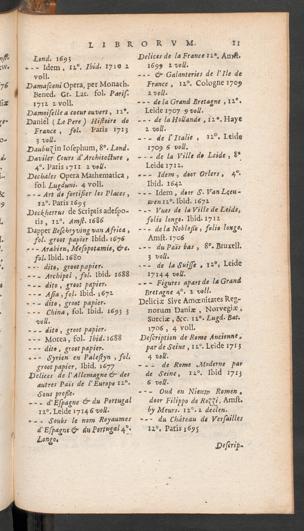 LIBRORUM. 11
Lond. 1693
--- Idem, 12°. Ibid. 1710 2
voll.
Damasceni Opera, per Monach.
Bened. Gr. Lat. fol. Paris.
1712 2 voll.
Damoiselle a coeur ouvert, 12°.
Daniel (Le Pere) Histoire de
France, fol. Paris 1713
3 voll.
Daubuz in Iosephum, 8°. Lond.
Daviler Cours d'Architecture,
4°. Paris 1711 2 voll.
Dechales Opera Mathematica,
fol. Lugduni. 4 voll.
--- Art de fortifier les Places,
12°. Paris 1695
Deckherrus de Scriptis adespo-
tis, 12°. Amst. 1686
Dapper Beschryving van Africa,
fol. groot papier Ibid. 1676
--- Arabien, Mesopotamie, &c.
fol. Ibid. 1680
--- dito, groot papier.
--- Archipel, fol. Ibid. 1688
--- dito, groot papier.
--- Asia, fol. Ibid. 1672
--- dito, groot papier.
--- China, fol. Ibid. 1693 3
voll.
--- dito, groot papier.
--- Morea, fol. Ibid. 1688
--- dito, groot papier.
--- Syrien en Palestyn, fol.
groot papier, Ibid. 1677
Delices de l'Allemagne & des
autres Pais de l'Europe 12°.
Sous presse.
--- d'Espagne & du Portugal
12°. Leide 1714 6 voll.
--- Soubs le nom Royaumes
d'Espagne & du Portugal 4°.
Longo.
Delices de la France 12°. Amst.
1699 2 voll.
--- & Galanteries de l'Ile de
France, 12°. Cologne 1709
2 voll.
--- de la Grand Bretagne, 12°.
Leide 1707 9 voll.
--- de la Hollande, 12°. Haye
2 voll.
--- de l'Italie, 12°. Leide
1709 6 voll.
--- de la Ville de Leide, 8°
Leide 1712.
--- Idem, door Orlers, 4°.
Ibid. 1642
--- Idem, door S. Van Leeu-
wen 12°. Ibid. 1672
--- Vues de la Ville de Leide,
folio longo. Ibid. 1712
--- de la Noblesse, folio longo,
Amst. 1706
--- du Pais bas, 8°. Bruxell.
3 voll.
--- de la Suisse, 12°. Leide
1714 4 voll.
--- Figures apart de la Grand
Bretagne 4°. 2 voll.
Deliciæ Sive Amœnitates Reg-
norum Daniæ, Norvegiæ,
Sueciæ, &c. 12°. Lugd. Bat.
1706, 4 voll.
Description de Rome Ancienne,
par de Seine, 12°. Leide 1713
4 voll.
--- de Rome Moderne par
de Seine, 12°. Ibid 1713
6 voll.
--- Oud en Nieuw Romen,
door Filippo de Rossi, Amst.
by Meurs. 12°. 2 delen.
--- du Château de Versailles
12°. Paris 1695
Descrip-